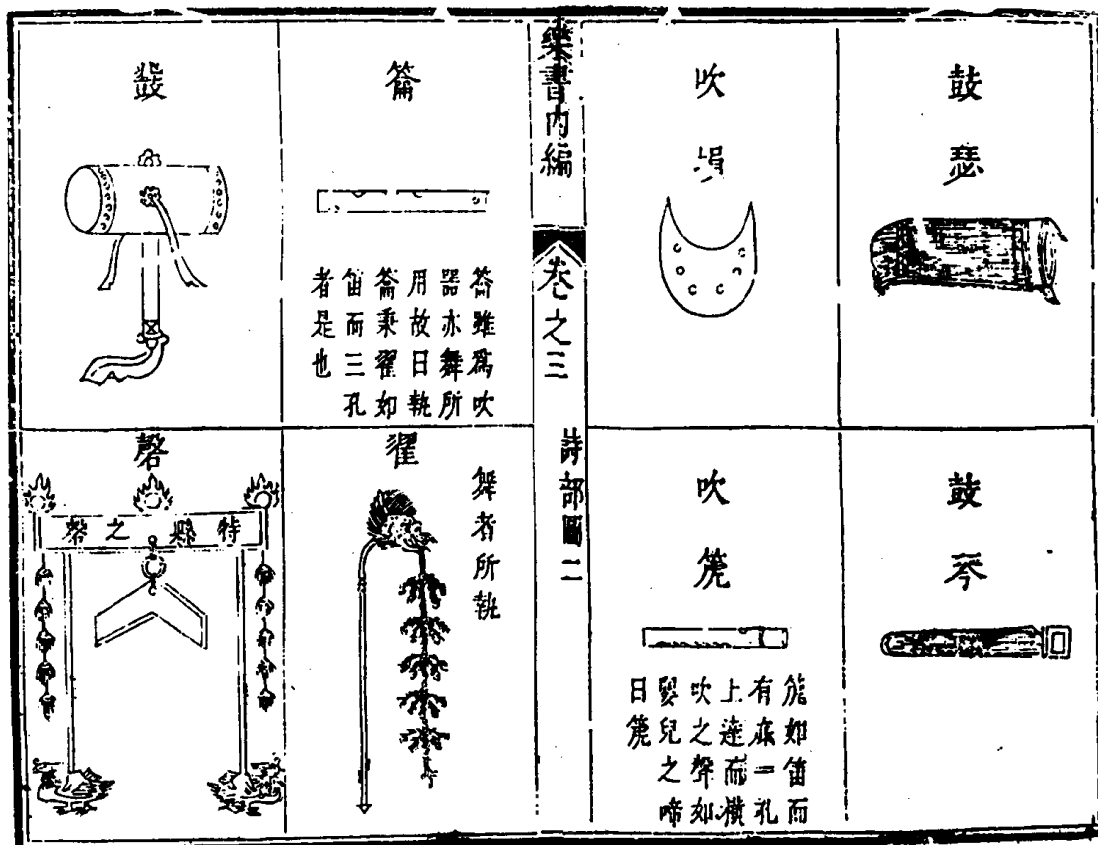 鼓瑟
鼓琴
吹塤
吹篪
篪如笛而
有底一孔
上達而橫
吹之聲如
嬰兒之啼
曰篪
樂書內編
卷之三
詩部圖二
籥
籥雖爲吹
器亦舞所
用故曰執
籥秉翟如
笛而三孔
者是也
翟
舞者所執
鼗
磬
特縣之磬